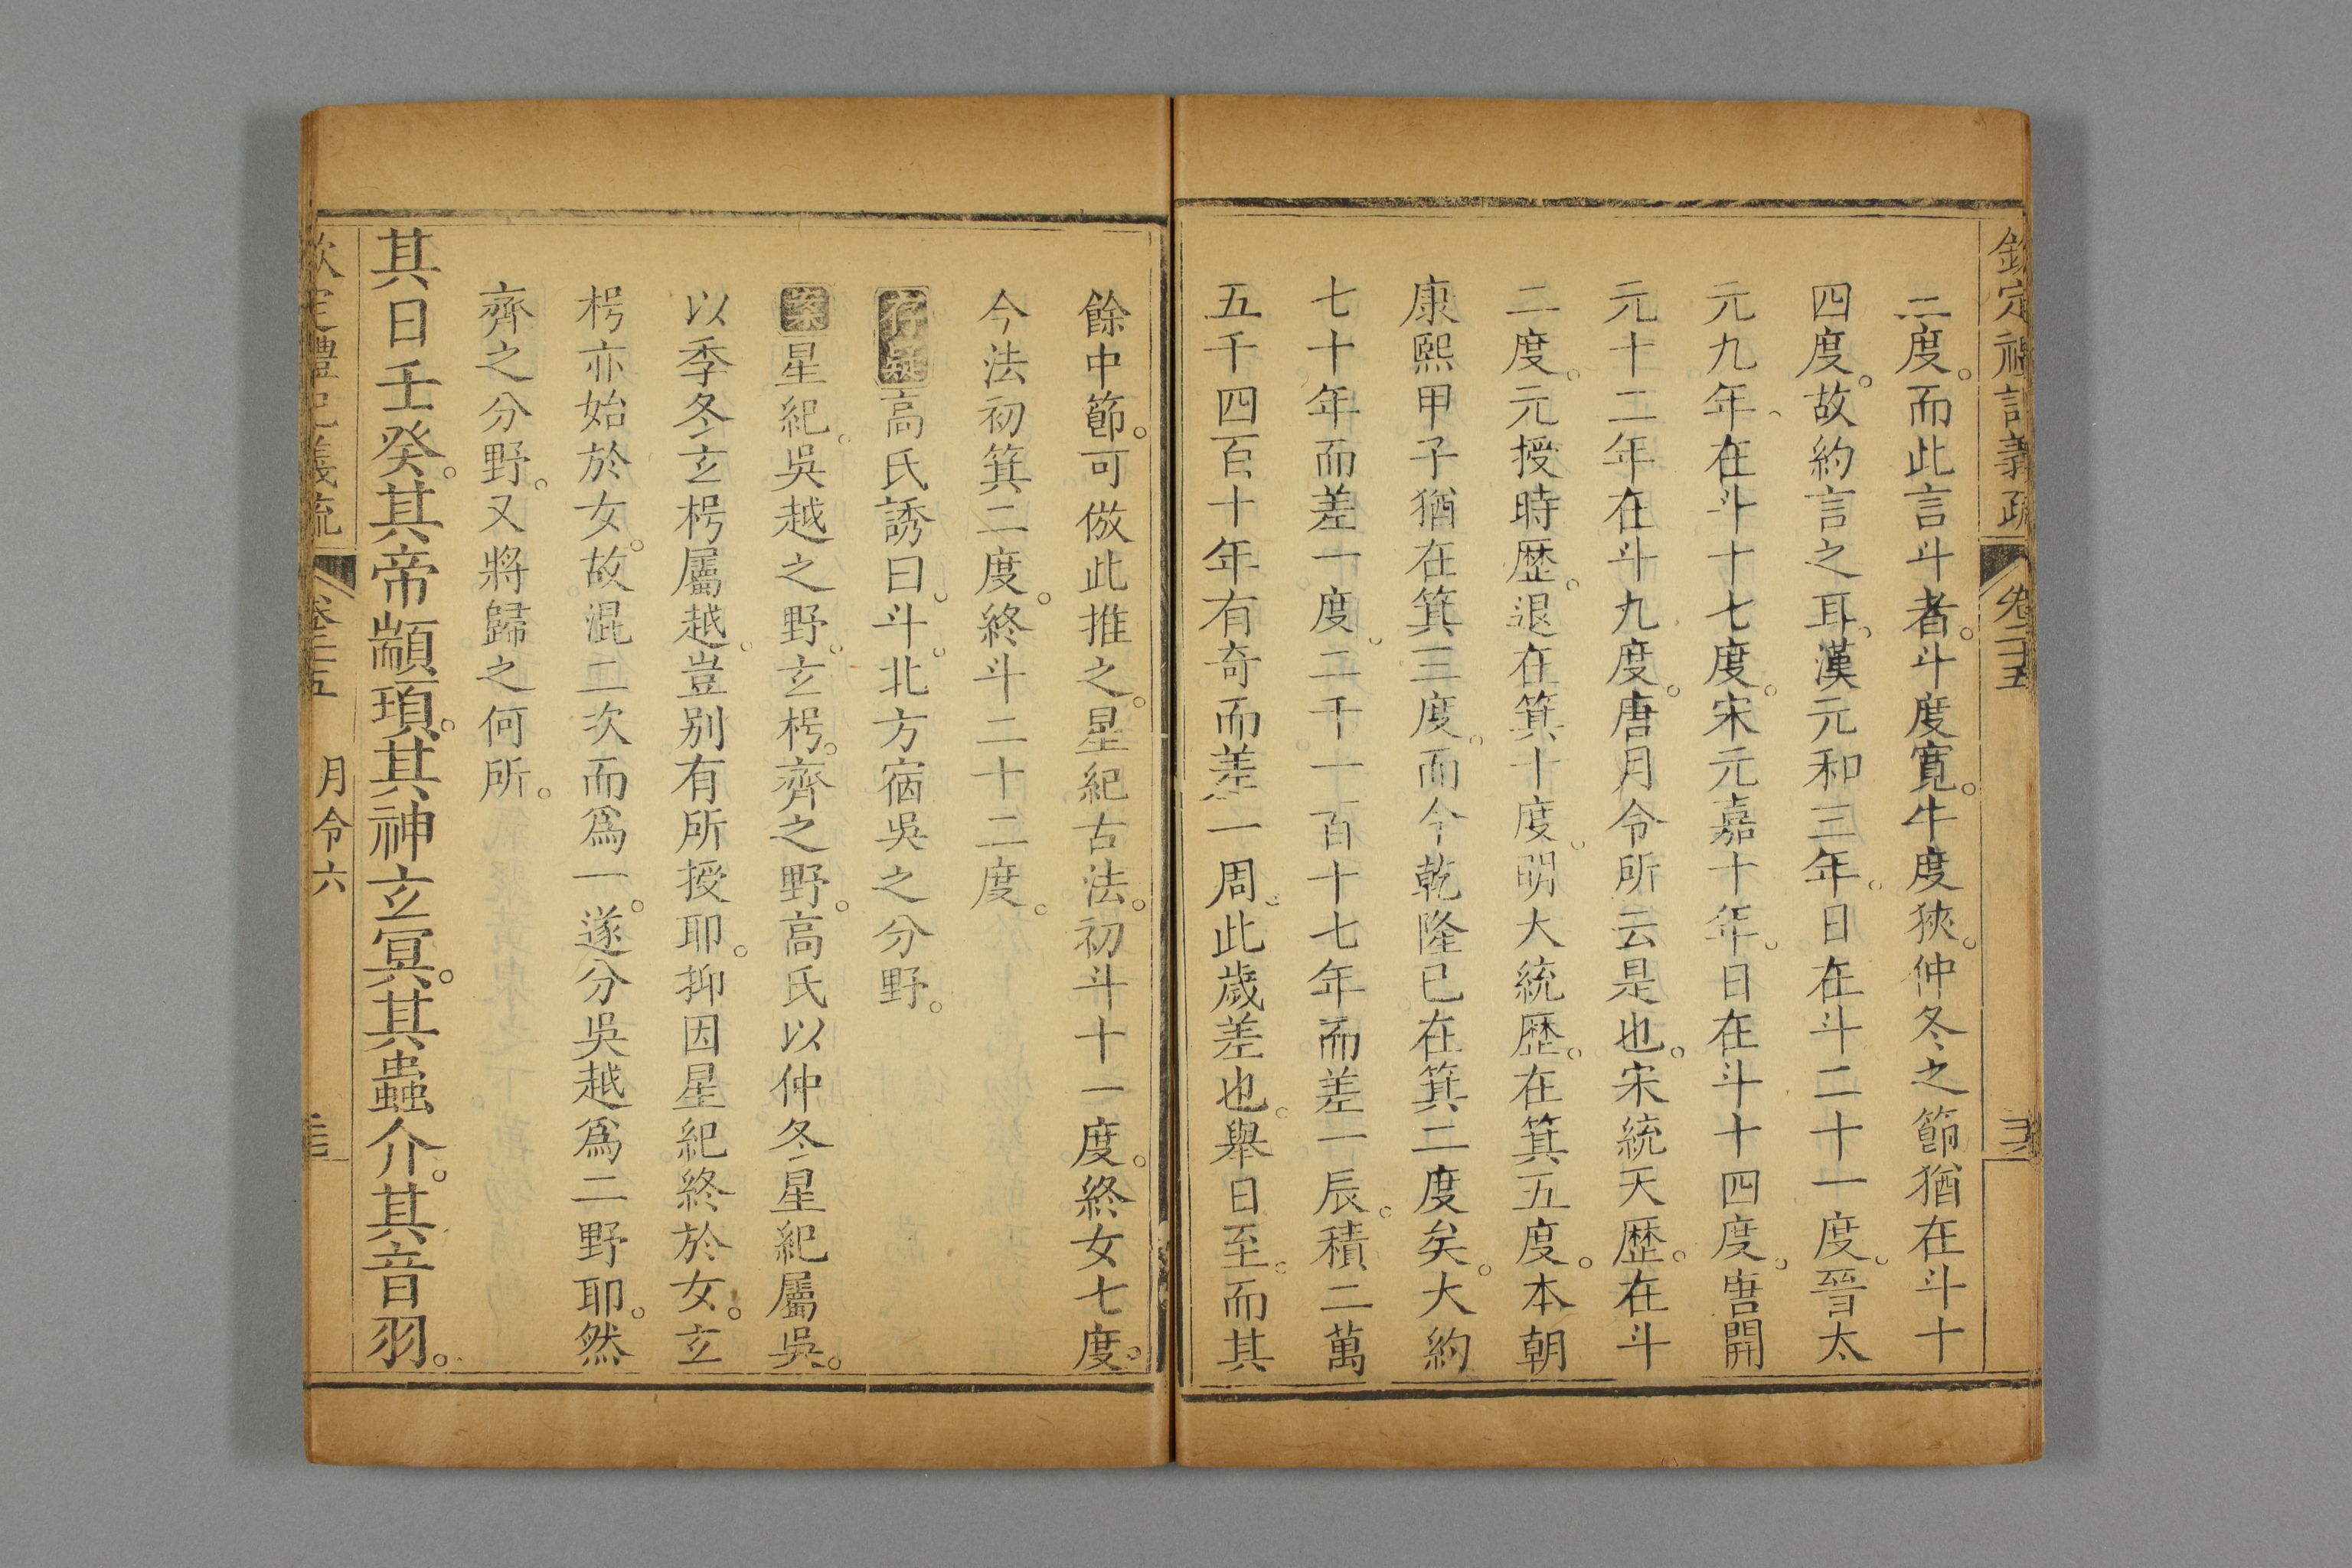 欽定禮記義疏 卷二十五
二度。而此言斗者。斗度寬。牛度狹。仲冬之節猶在斗十
四度。故約言之耳。漢元和三年。日在斗二十一度。晉太
元九年、在斗十七度。宋元嘉十年。日在斗十四度。唐開
元十二年在斗九度。唐月令所云是也。宋統天歴。在斗
二度。元授時歴。退在箕十度。明大統歴。在箕五度。本朝
康熙甲子猶在箕三度。而今乾隆已在箕二度矣。大約
七十年而差一度。二千一百十七年而差一辰。積二萬
五千四百十年有奇而差一周。此歲差也。舉日至。而其
餘中節。可倣此推之。星紀古法。初斗十一度。終女七度。
今法初箕二度。終斗二十二度。
存疑高氏誘曰。斗。北方宿吳之分野。
案星紀。吳越之野。玄枵。齊之野。高氏以仲冬星紀屬吳。
以季冬玄枵屬越。豈别有所授耶。抑因星紀終於女。玄
枵亦始於女。故混二次而爲一。遂分吳越爲二野耶。然
齊之分野。又將歸之何所。
其日壬癸。其帝顓頊。其神玄冥。其蟲介。其音羽。
欽定禮記義疏 卷二十五 月令六